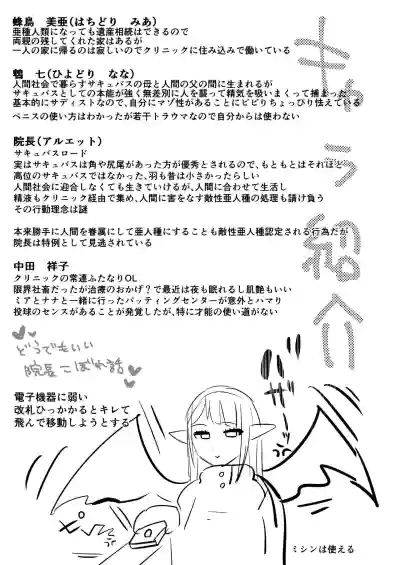 キャラ紹介
蜂鳥　美亜(はちどり　みあ)
亜種人類になっても遺産相続はできるので
両親の残してくれた家はあるが
一人の家に帰るのは寂しいのでクリニックに住み込みで働いている
鵯　七(ひよどり　なな)
人間社会で暮らすサキュバスの母と人間の父の間に生まれるが
サキュバスとしての本能が強く無差別に人を襲って精気を吸いまくって捕まった
基本的にサディストなので、自分にマゾ性があることにビビりちょっぴり怯えている
ペニスの使い方はわかったが若干トラウマなので自分からは使わない
院長(アルエット)
サキュバスロード
実はサキュバスは角や尻尾があった方が優秀とされるので、もともとはそれほど
高位のサキュバスではなかった、羽も昔は小さかったらしい
人間社会に迎合しなくても生きていけるが、人間に合わせて生活し
精液もクリニック経由で集め、人間に害をなす敵性亜人種の処理も請け負う
その行動理念は謎
本来勝手に人間を眷属にして亜人種にすることも敵性亜人種認定される行為だが
院長は特例として見逃されている
中田　祥子
クリニックの常連ふたなりOL
限界社畜だったが治療のおかげ？で最近は夜も眠れるし肌艶もいい
ミアとナナと一緒に行ったバッティングセンターが意外とハマり
投球のセンスがあることが発覚したが、特に才能の使い道がない
どうでもいい
院長こぼれ話
電子機器に弱い
改札ひっかかるとキレて
飛んで移動しようとする
ミシンは使える